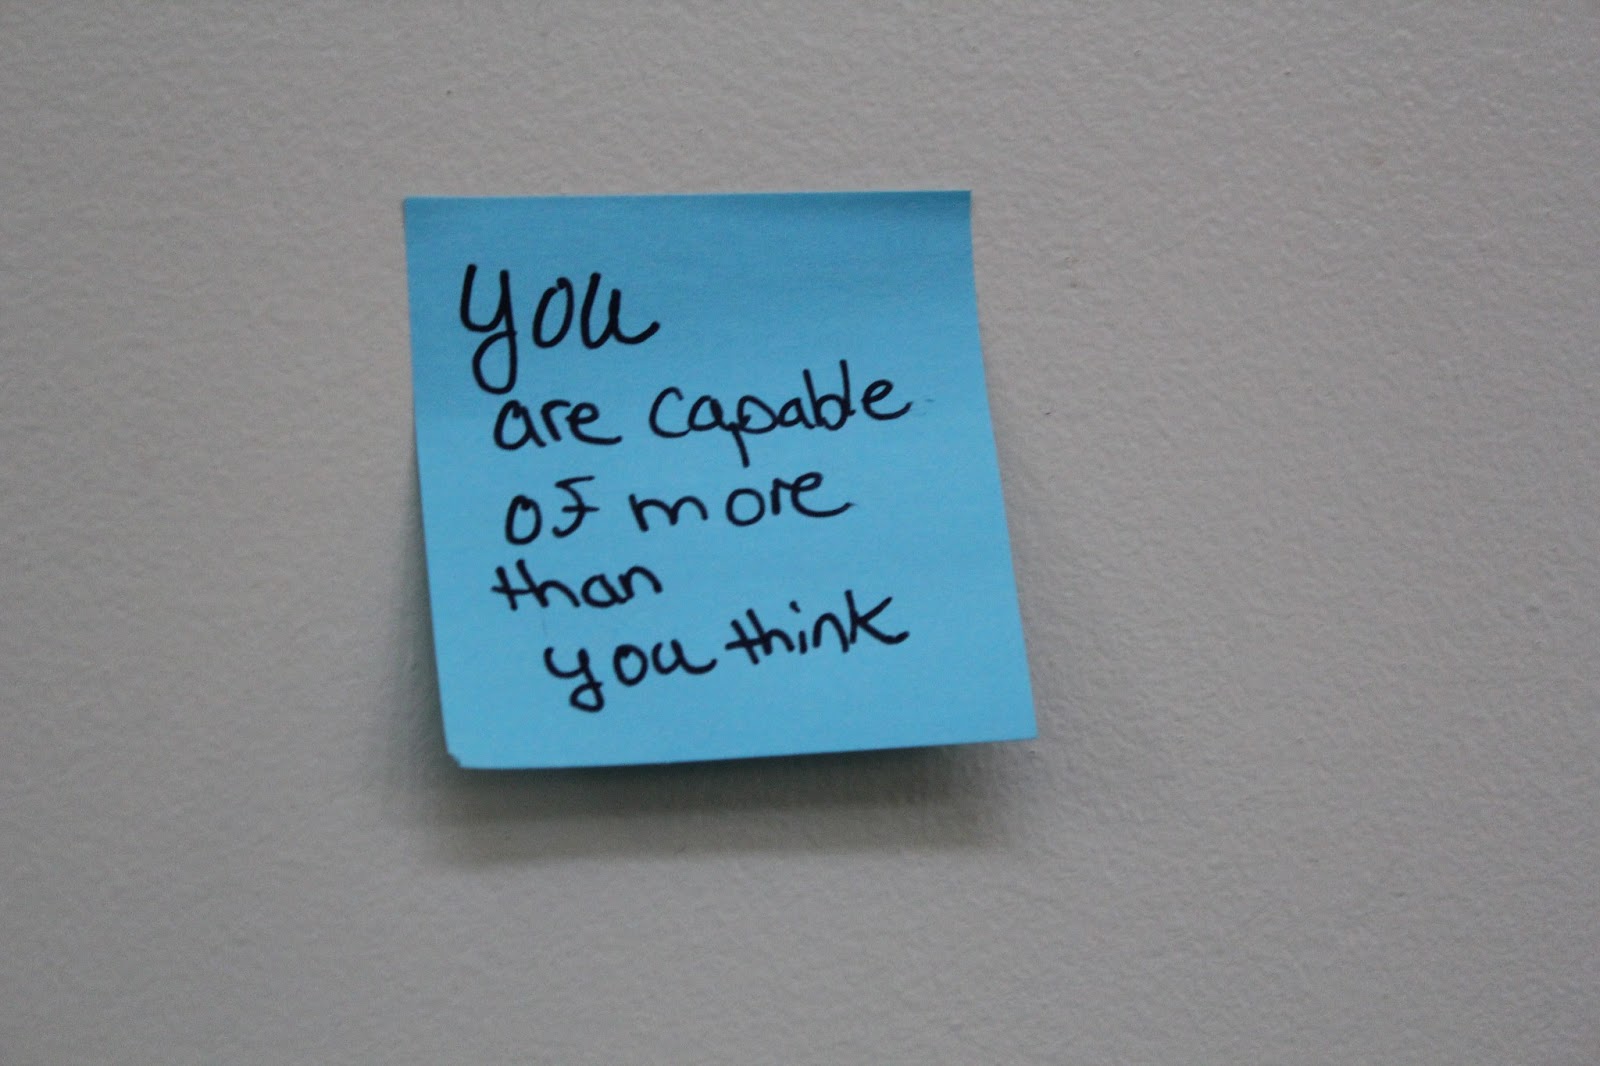 you
are capable
of more
than
you think